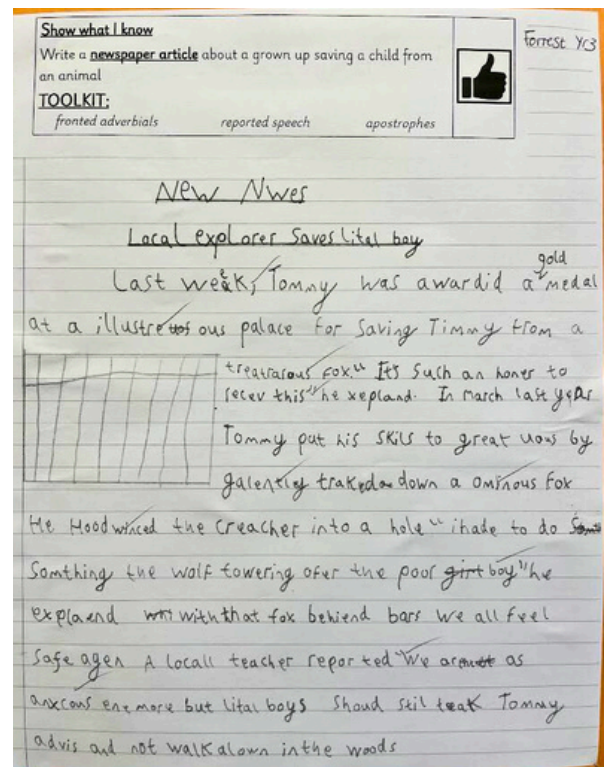 Show what I know
Write a newspaper article about a grown up saving a child from
an animal
TOOLKIT:
fronted adverbials reported speech apostrophes
Forrest Yr3
New Nwes
Local explorer Saves lital boy
Last week, Tommy was awardid a gold medal
at a illustreous palace for Saving Timmy from a
treatrarous fox." It's Such an honer to
recev this" he xepland. In march last year
Tommy put his skils to great uous by
galently traked down a ominous fox
He Hoodwinced the creacher into a hole" ihade to do
Somthing the wolf towering ofer the poor boy" he
explaend with that fox behiend bars we all feel
safe agen A locall teacher reported "We are as
anxcous eneymore but lital boys Shoud stil teak Tommy
advis and not walk alown in the woods